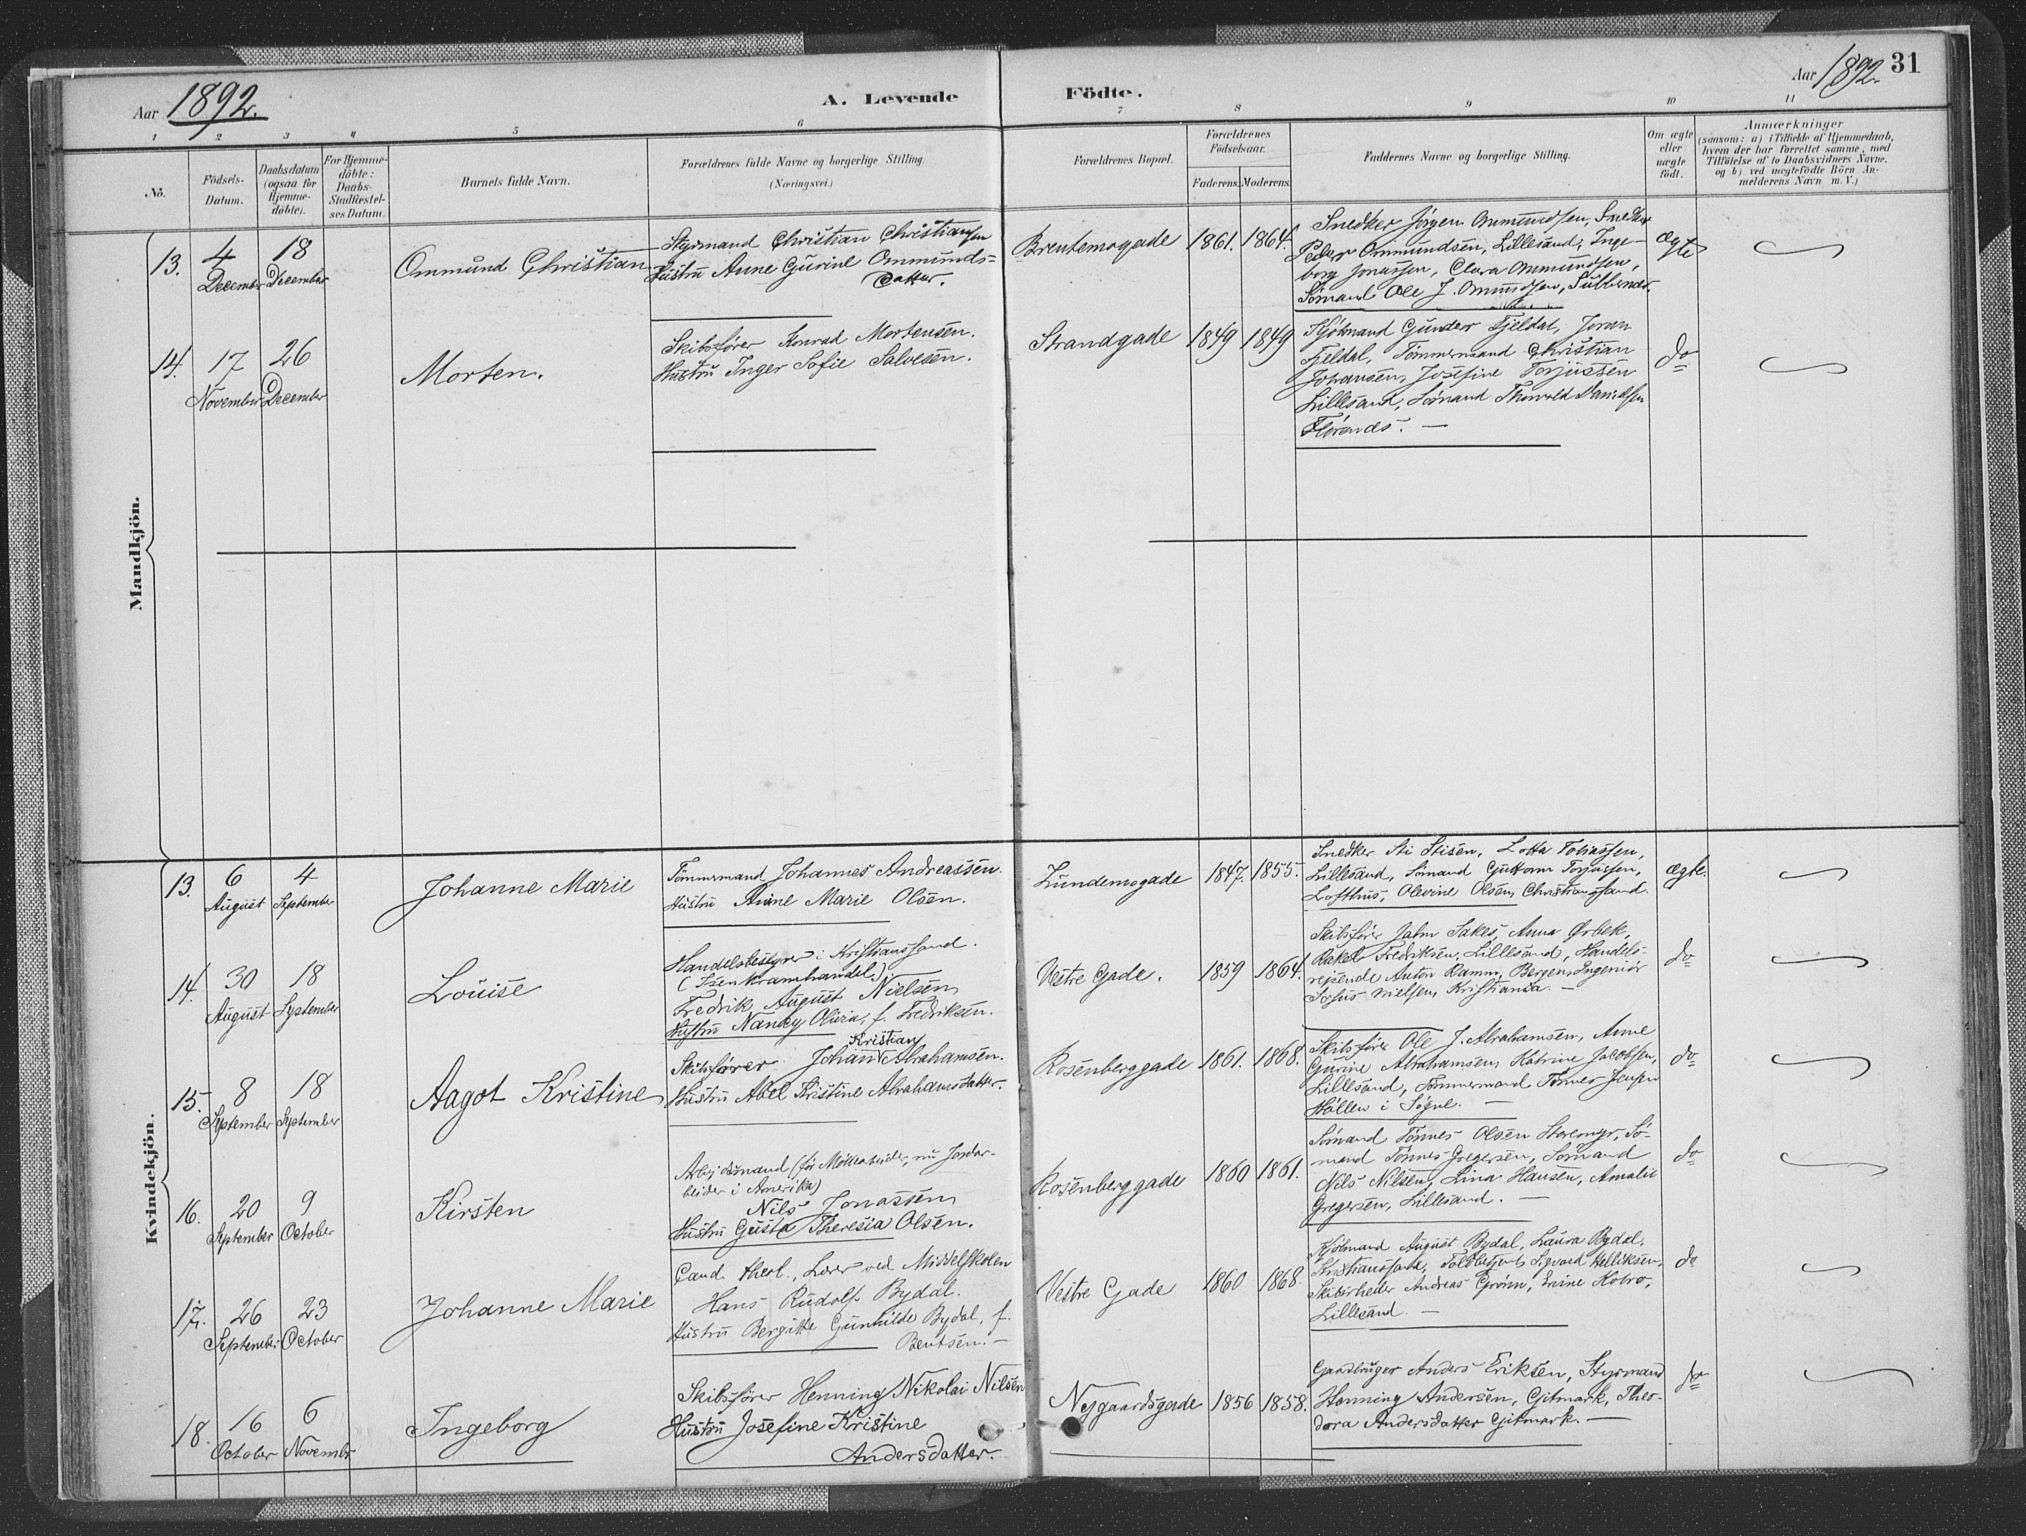 Aar 1892.
A. Levende Födte.
Aar 1892. 31
1 2 3 4 5 6 7 8 9 10 11
No.
Födsels-
Datum.
Daabsdatum
(ogsaa for
Hjemme-
döbte).
For Hjemme-
döbte:
Daabs-
Stadfæstel-
ses Datum.
Barnets fulde Navn.
Forældrenes fulde Navne og borgerlige Stilling.
(Næringsvei.)
Forældrenes Bopæl.
Forældrenes
Födselsaar.
Faderens. Moderens.
Faddernes Navne og borgerlige Stilling.
Om ægte
eller
uægte
födt.
Anmærkninger
(saasom: a) i Tilfælde af Hjemmedaab,
hvem der har forrettet samme, med
Tilföielse af to Daabsvidners Navne.
og b) ved uægtefödte Börn An-
melderens Navn m. V.)
Mandkjön.
13.
4
December
18
December
Ommund Christian
Styrmand Christian Christiansen
Hustru Anne Gurine Ommunds-
datter.
Brentemogade
1861. 1864.
Snedker Jörgen Ommundsen, Snedker
Peder Ommundsen, Lillesand, Inge-
borg Jonassen, Clara Ommundsen,
Sömand Ole J. Ommundsen,
ægte
14.
17
November
26
December
Morten.
Skibsförer Konrad Mortensen.
Hustru Inger Sofie Salvesen.
Strandgade
1849 1849
Kjöbmand Gunder Fjeldal, Joran
Fjeldal, Tömmermand Christian
Johansen, Josefine Torjussen
Lillesand, Sömand Thorvald Danielsen
do
Kvindekjön.
13.
6
August
4
September
Johanne Marie
Tömmermand Johannes Andreassen
Hustru Anne Marie Olsen.
Lundemogade
1847. 1855.
Snedker Stisen, Lotta Tobiassen,
Lillesand, Sömand Guttorm Torjussen,
Lofthus, Olevine Olsen, Christianssand.
ægte.
14.
30
August
18
September
Louise
Handelsbestyrer i Kristianssand.
(Isenkramhandel).
Fredrik August Nielsen
Hustru Nancy Olivia, f. Fredriksen.
Vestre Gade.
1859 1864.
Skibsförer Jakes, Anna Ørbek,
Rakel Fredriksen, Lillesand, Handels-
reisende Anton Ramm, Bergen, Ingeniör
Sofus Nielsen, Kristiania. —
do
15.
8
September
18
September
Aagot Kristine
Kristian
Skibsförer Johan Abrahamsen.
Hustru Abel Kristine Abrahamsdatter.
Rosenberggade
1861. 1868.
Skibsförer Ole J. Abrahamsen, Anne
Gurine Abrahamsen, Katrine Jacobsen,
Lillesand, Tömmermand Tönnes Jensen
Höllen i Sögne. —
do
16.
20
September
9
October
Kirsten
Arbeidsmand (för Möllearbeider, nu Jordar-
beider i Amerika)
Nils Jonassen
Hustru Gusta Theresia Olsen.
Rosenberggade
1860 1861.
Sömand Tönnes Olsen Sö-
mand Tönnes Gregersen, Sömand
Nils Nilsen, Lina Hansen, Amalie
Gregersen, Lillesand. —
do
17.
26
September
23
October
Johanne Marie
Cand. theol., Lærer ved Middelskolen
Hans Rudolf Bydal.
Hustru Bergitte Gunhilde Bydal, f.
Bentsen. —
Vestre Gade
1860 1868
Kjöbmand August Bydal, Laura Bydal,
Kristianssand, Toldbetjent Sigvard Kittilsen,
Skibsrheder Andreas Grönn,
Lillesand. —
do
18.
16
October
6
November
Ingeborg
Skibsförer Henning Nikolai Nilsen
Hustru Josefine Kristine
Andersdatter.
Nygaardsgade
1856 1858.
Gaardbruger Anders Eriksen, Styrmand
Henning Andersen, Gitmark, Theo-
dora Andersdatter Gitmark. —
do